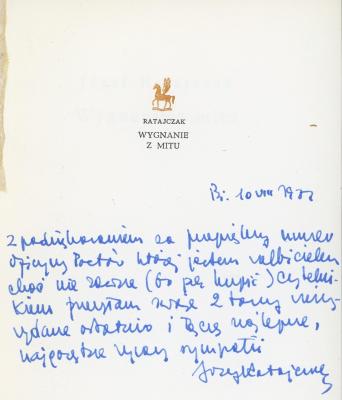 RATAJCZAK
WYGNANIE
Z MITU
10 VIII 1977
z podziękowaniem za przepiękny numer
Poetów której jestem wielbicielem
choć nie zawsze (bo kupić) czytelni-
kiem przesyłam swoje 2 tomy
wydane ostatnio i łączę najlepsze,
najgorętsze wyrazy sympatii
Józef Ratajczak